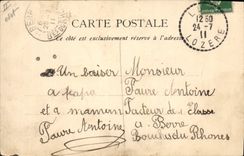 CARTE POSTALE
Ce côté est exclusivement réservé à l'adresse
12 50
24 - 7
11
LOZERE
Un baiser
à papa
et a maman
Faure Antoine
Monsieur
Faure Antoine
Facteur de 1 Classe
a Berre
Bouches du Rhones